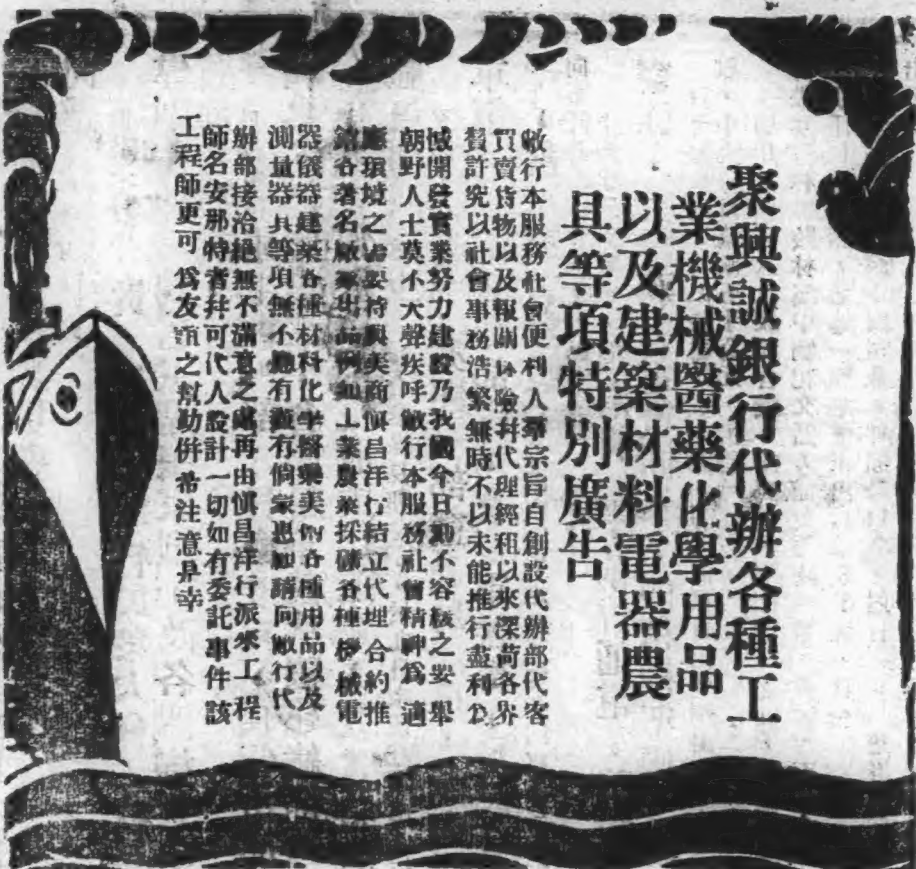 聚興誠銀行代辦各種工
業機械醫藥化學用品
以及建築材料電器農
具等項特別廣告
敝行本服務社會便利人羣宗旨自創設代辦部代客
買賣貨物以及報關保險幷代理經租以來深荷各界
贊許究以社會事務浩繁無時不以未能推行盡利公
開發實業努力建設乃我國今日刻不容緩之要舉
朝野人士莫不大聲疾呼敝行本服務社會精神爲適
應環境之需要特與美商愼昌洋行結立代理合約推
銷各著名廠家出品例如工業農業採礦各種機械電
器儀器建築各種材料化學醫藥美術各種用品以及
測量器具等項無不應有盡有倘家惠顧請向敝行代
辦部接洽絕無不滿意之處再由愼昌洋行派來工程
師名安那特者幷可代人設計一切如有委託事件該
工程師更可爲友誼之幫助併希注意是幸